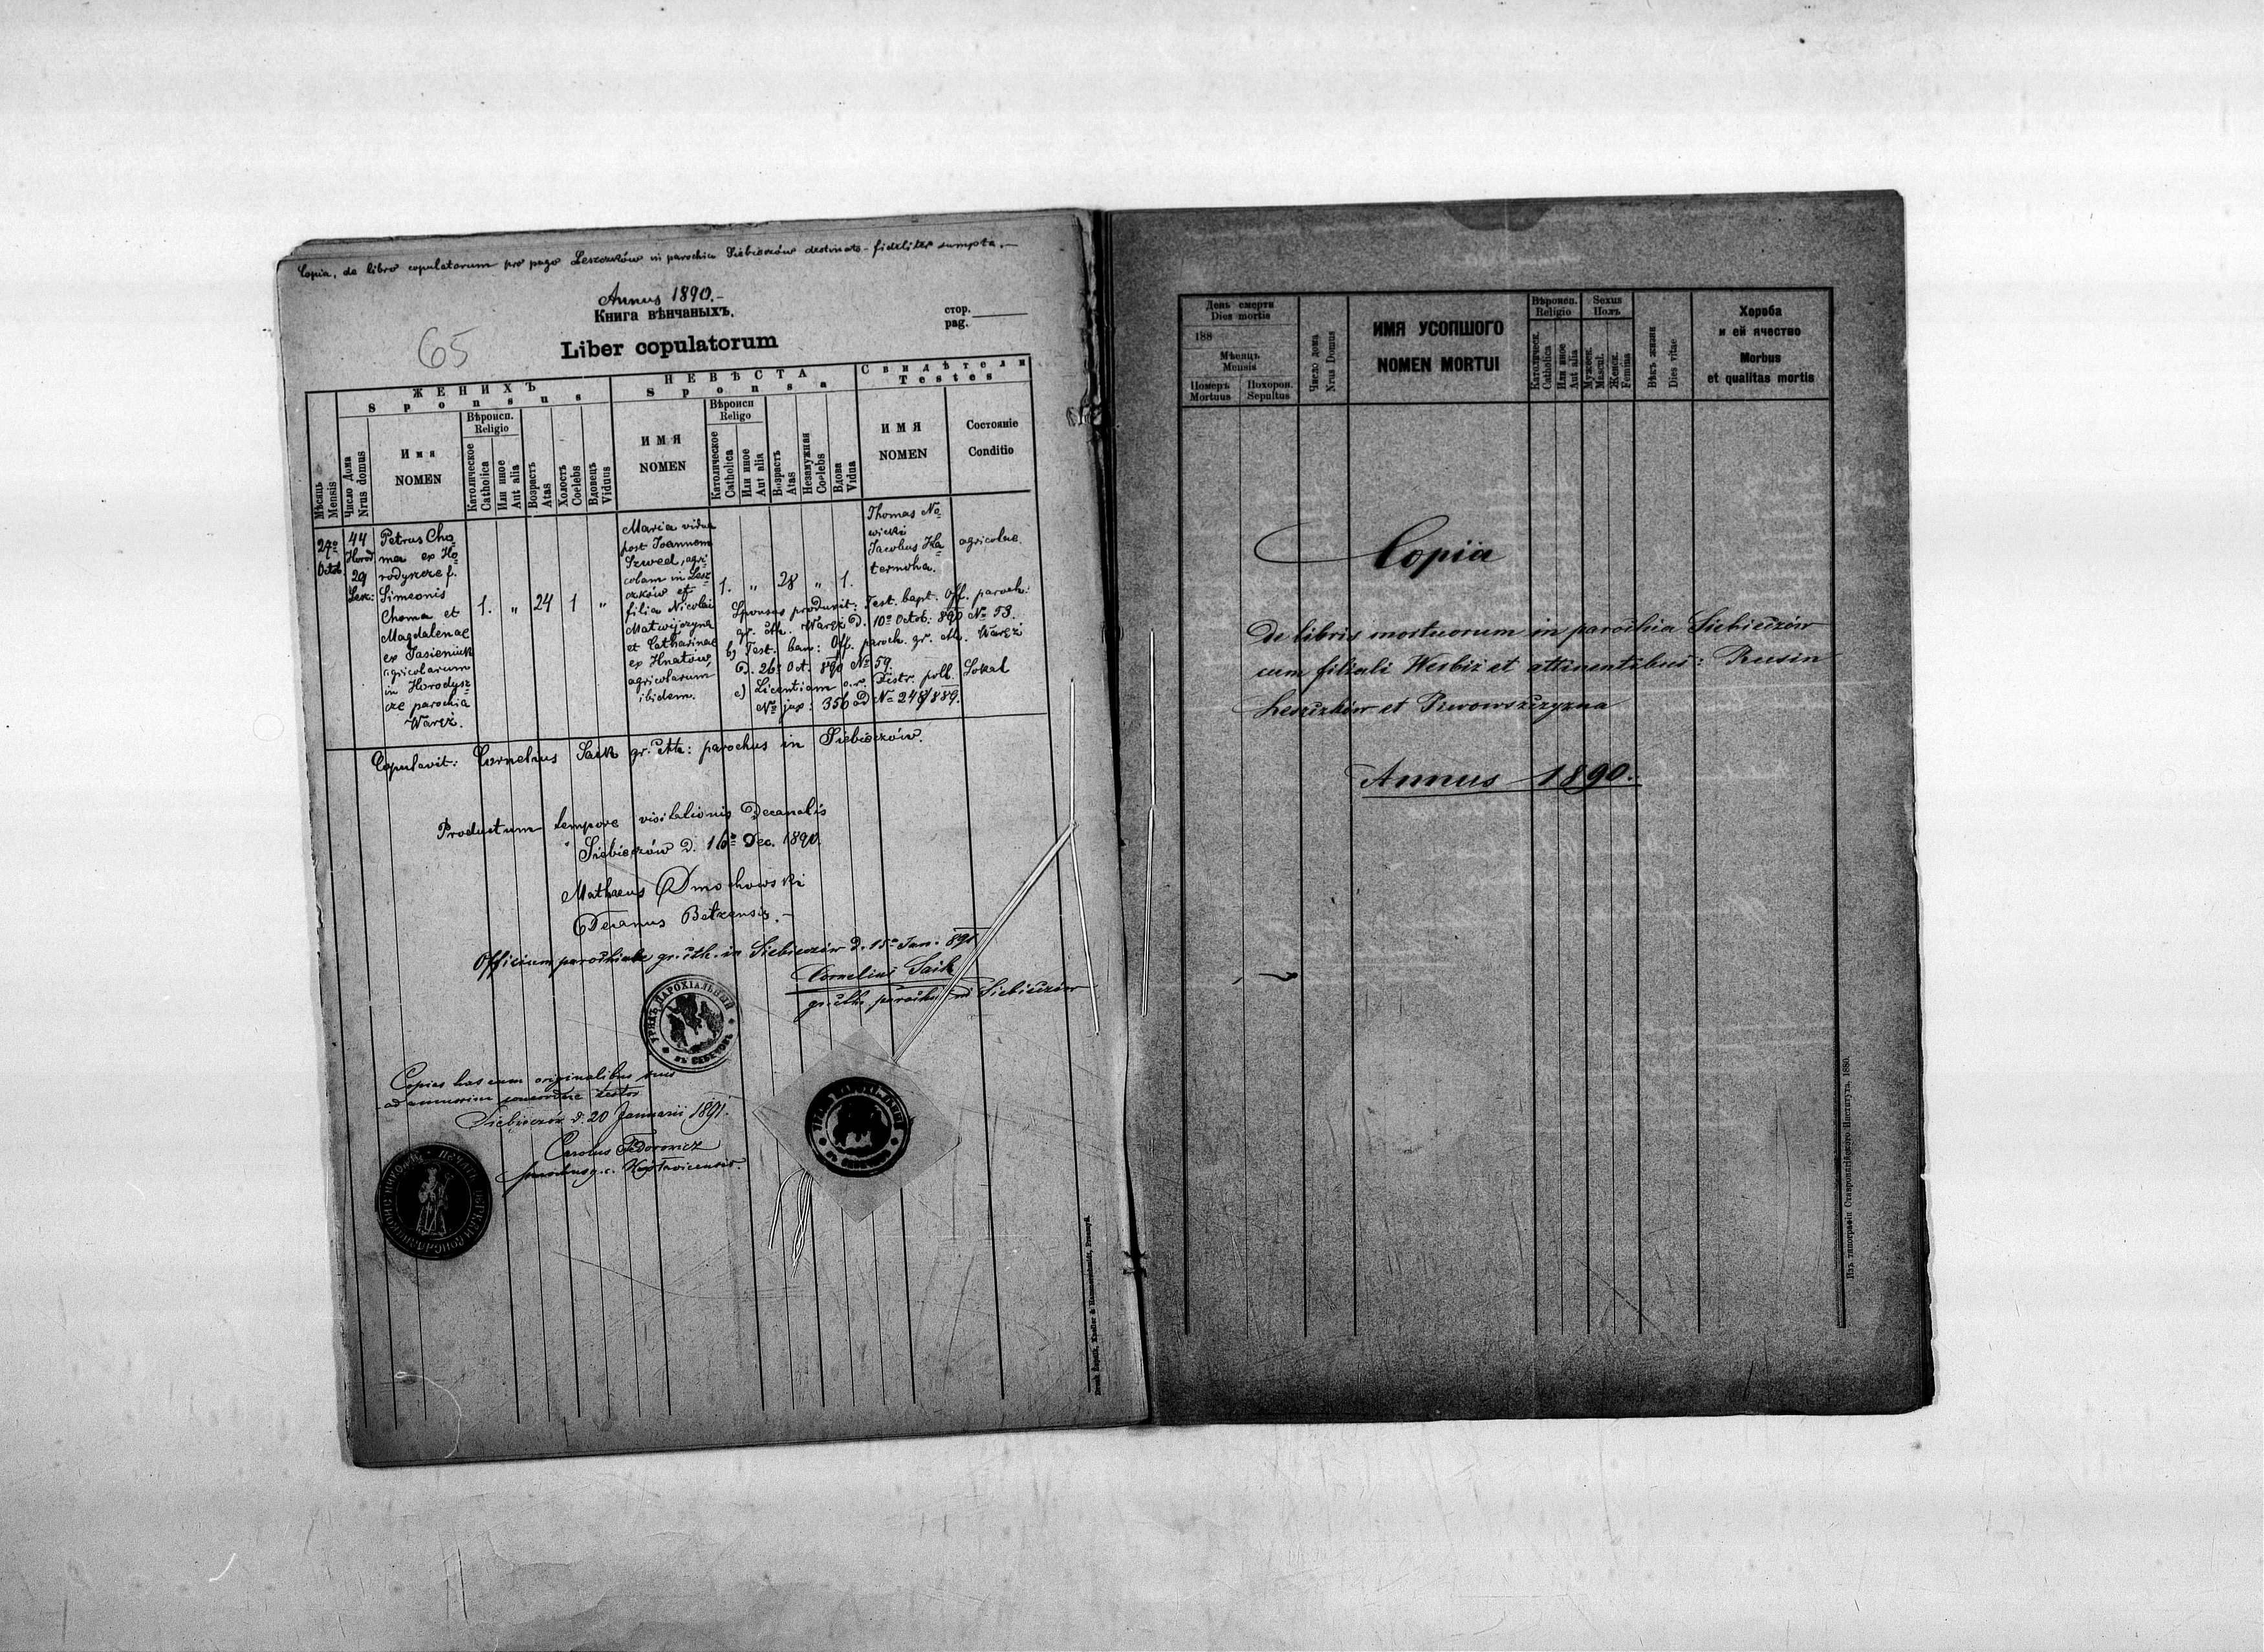 Copia, de libro copulatorum pro pago Leszczków in parochia Siebieczów destinato - fideliter sumpta.-
Annus 1890.-
Книга вѣнчаныхъ.
65
стор.
pag.
Liber copulatorum
ЖЕНИХЪ
Sponsus
НЕВѢСТА
Sponsa
Свидѣтели
Testes
Мѣсяць
Mensis
Число Дома
Nrus domus
Имя
NOMEN
Вѣроисп.
Religio
Католическое
Catholica
Или иное
Aut alia
Возрастъ
Atas
Холостъ
Coelebs
Вдовецъ
Viduus
ИМЯ
NOMEN
Вѣроисп
Religo
Католическое
Catholica
Или иное
Aut alia
Возрастъ
Atas
Незамужная
Coelebs
Вдова
Vidua
ИМЯ
NOMEN
Состояніе
Conditio
27º
Octob
44
Horod
29
Lesz:
Petrus Cho=
ma ex Ho=
rodyszcze f.
Simeonis
Choma et
Magdalenae
ex Jasieniuk
agricolarum
in Horodysz=
cze parochia
Waręż.
1. " 24 1 "
Maria vidua
post Joannem
Szwed, agri=
colam in Lesz=
czków et
filia Nicolai
Matwijczyna
et Catharinae
ex Hnatów,
agricolarum
ibidem.
1. " 28 " 1.
Thomas No=
wicki
Jacobus Ha=
ternoha.
agricolae.
Sponsus produxit: Test. bapt. Off. paroch:
gr. cth. Waręż d. 10º Octob: 890 Nº 53.
b) Test. bann: Off. paroch. gr. cth. Waręż
d. 26º Oct. 890 Nº 59.
c) Licentiam c.r. Distr. polt. Sokal
Nº jux: 356 ad Nº 248/889.
Copulavit: Cornelius Saik gr. cth: parochus in Siebieczów.
Productum tempore visitationis Decanalis
Siebieczów d. 16º Dec. 1890
Mathaeus Dmochowski
Decanus Betzensis.-
Officium parochiale gr. cth. in Siebieczów d. 15º Jan. 891
Cornelius Saik
gr. cth. parochus in Siebieczów
УРЯДЪ ПАРОХІАЛЬНЫЙ
ВЪ СЕБЕЧОВѢ
Copias has cum originalibus suis
ad amussim concordare testor
Siebieczów d. 20 Januarii 1891.
Carolus Fedorowicz
parochus g.c.
Druck & Papier, Knaller & Hammerschmidt, Przemyśl.
День смерти
Dies mortis
188
Мѣсяць
Mensis
Померъ
Mortuus
Похорон.
Sepultus
Число дома
Nrus Domus
ИМЯ УСОПШОГО
NOMEN MORTUI
Вѣроисп.
Religio
Католическ.
Catholica
Или иное
Aut alia
Sexus
Полъ
Мужеск.
Mascul.
Женск.
Femina
Вѣкъ жизни
Dies vitae
Хороба
и ей ячество
Morbus
et qualitas mortis
Copia
De libris mortuorum in parochia Siebieczów
cum filiali Werbiż et attinentibus: Rusin
Leszczków et Piwowszczyzna
Annus 1890.
Изъ типографіи Ставропигійского Института. 1880.